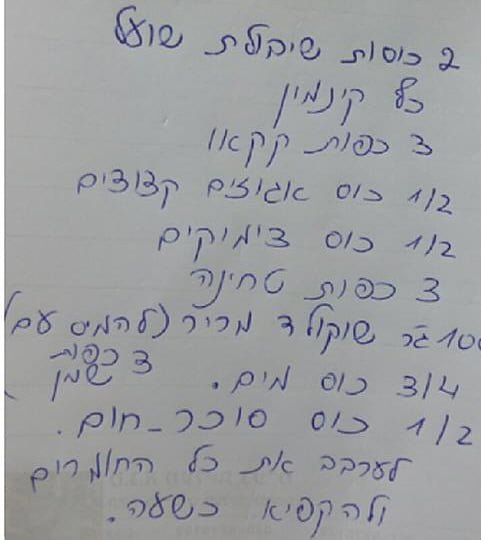 2 כוסות שיבולת שועל
כף קינמון
3 כפות קקאו
1/2 כוס אגוזים קצוצים
1/2 כוס צימוקים
3 כפות טחינה
100 גר שוקולד מריר (להמיס עם
3 כפות
שמן)
3/4 כוס מים.
1/2 כוס סוכר-חום.
לערבב את כל החומרים
ולהקפיא כשעה.